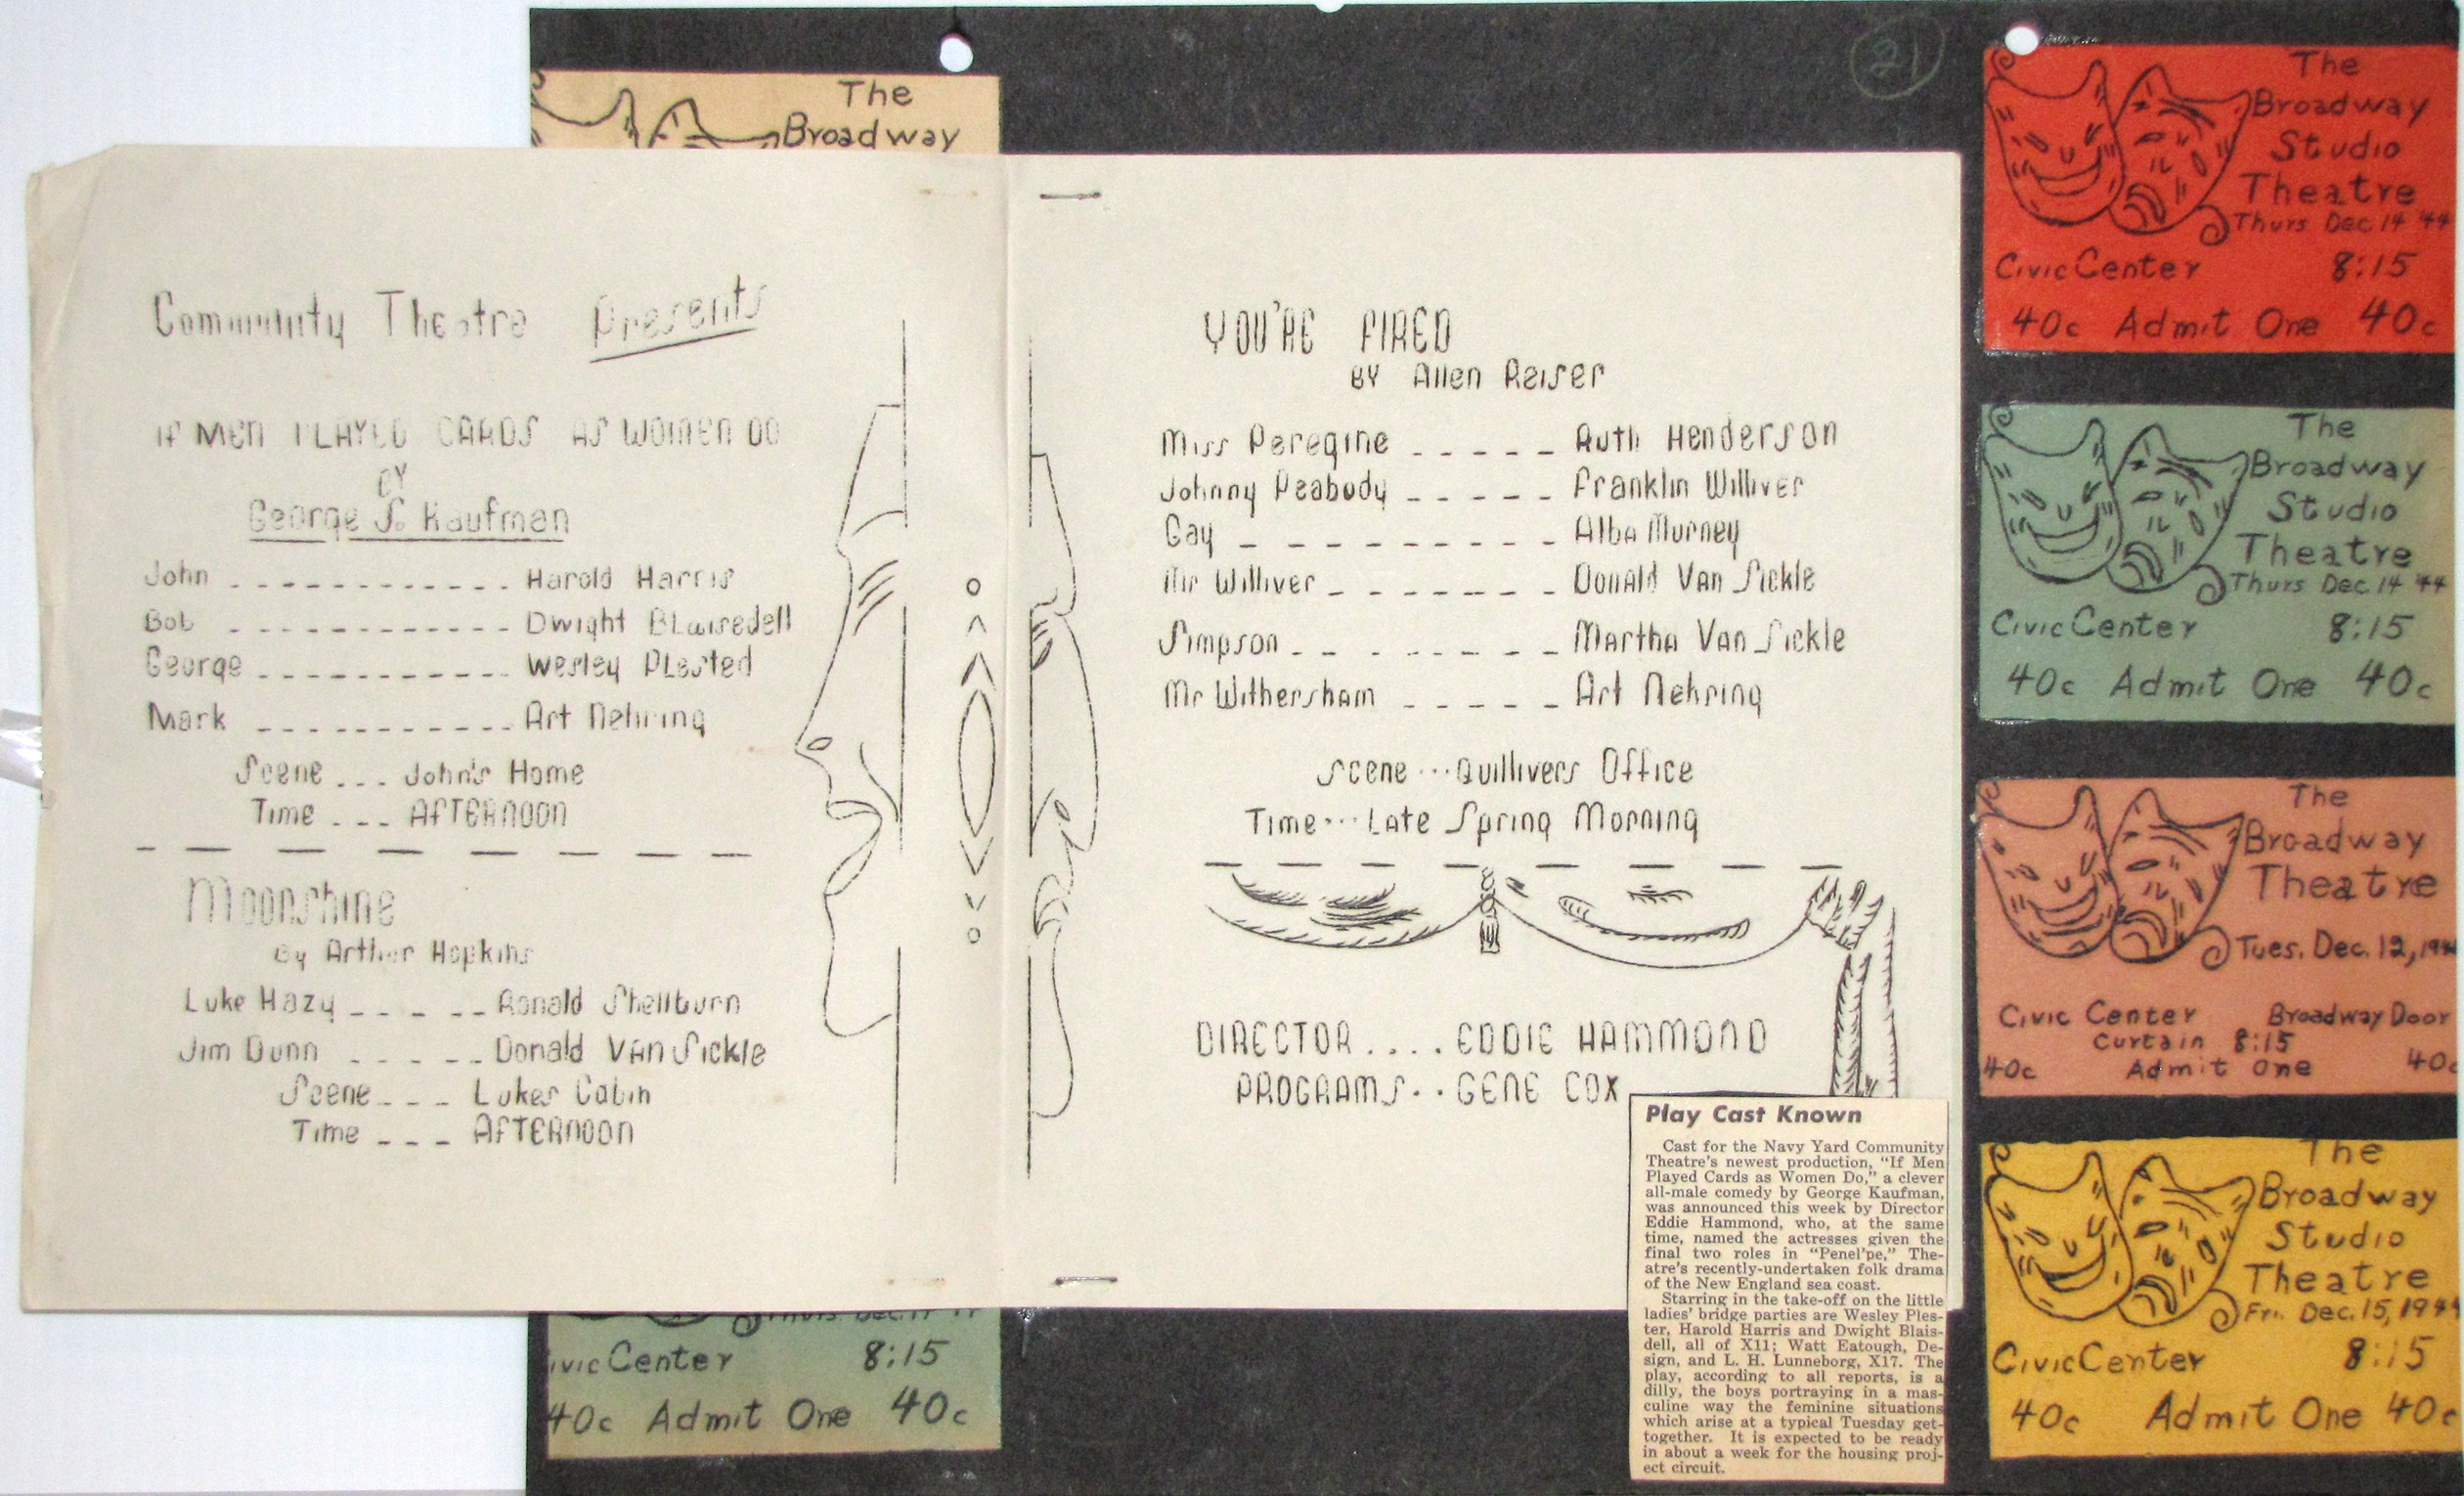 The
Broadway
Community Theatre Presents
IF MEN PLAYED CARDS AS WOMEN DO
BY
George S. Kaufman
John ------------ Harold Harris
Bob ------------ Dwight Blaisedell
George ----------- Wesley Plested
Mark ----------- Art Nehring
Scene --- John's Home
Time --- AFTERNOON
Moonshine
By Arther Hopkins
Luke Hazy ----- Ronald Shellburn
Jim Dunn ----- Donald Van Sickle
Scene --- Lukes Cabin
Time --- AFTERNOON
ivic Center 8:15
40c Admit One 40c
21
YOU'RE FIRED
BY Allen Reiser
Miss Peregine ----- Ruth Henderson
Johnny Peabody ----- Franklin Williver
Gay --------- Alba Murney
Mr Williver ------- Donald Van Sickle
Simpson -------- Martha Van Sickle
Mr Withersham ----- Art Nehring
Scene ... Quillivers Office
Time ... Late Spring Morning
DIRECTOR .... EDDIE HAMMOND
PROGRAMS .. GENE COX
Play Cast Known
Cast for the Navy Yard Community
Theatre's newest production, "If Men
Played Cards as Women Do," a clever
all-male comedy by George Kaufman,
was announced this week by Director
Eddie Hammond, who, at the same
time, named the actresses given the
final two roles in "Penel'pe," The-
atre's recently-undertaken folk drama
of the New England sea coast.
Starring in the take-off on the little
ladies' bridge parties are Wesley Ples-
ter, Harold Harris and Dwight Blais-
dell, all of X11; Watt Eatough, De-
sign, and L. H. Lunneborg, X17. The
play, according to all reports, is a
dilly, the boys portraying in a mas-
culine way the feminine situations
which arise at a typical Tuesday get-
together. It is expected to be ready
in about a week for the housing proj-
ect circuit.
The
Broadway
Studio
Theatre
Thurs Dec 14 '44
Civic Center 8:15
40c Admit One 40c
The
Broadway
Studio
Theatre
Thurs Dec 14 '44
Civic Center 8:15
40c Admit One 40c
The
Broadway
Theatre
Tues. Dec. 12, 194
Civic Center Broadway Door
Curtain 8:15
40c Admit One 40c
The
Broadway
Studio
Theatre
Fri. Dec. 15, 1944
Civic Center 8:15
40c Admit One 40c